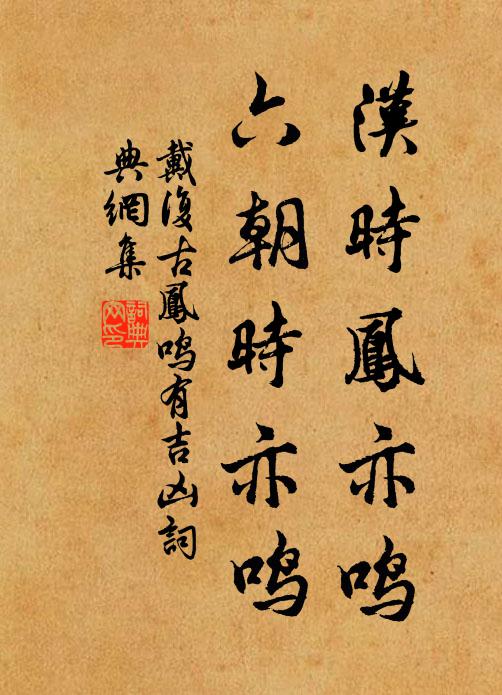 漢時鳳亦鳴
六朝時亦鳴
戴復古鳳鳴有吉凶詞
典網集
詞典
网印